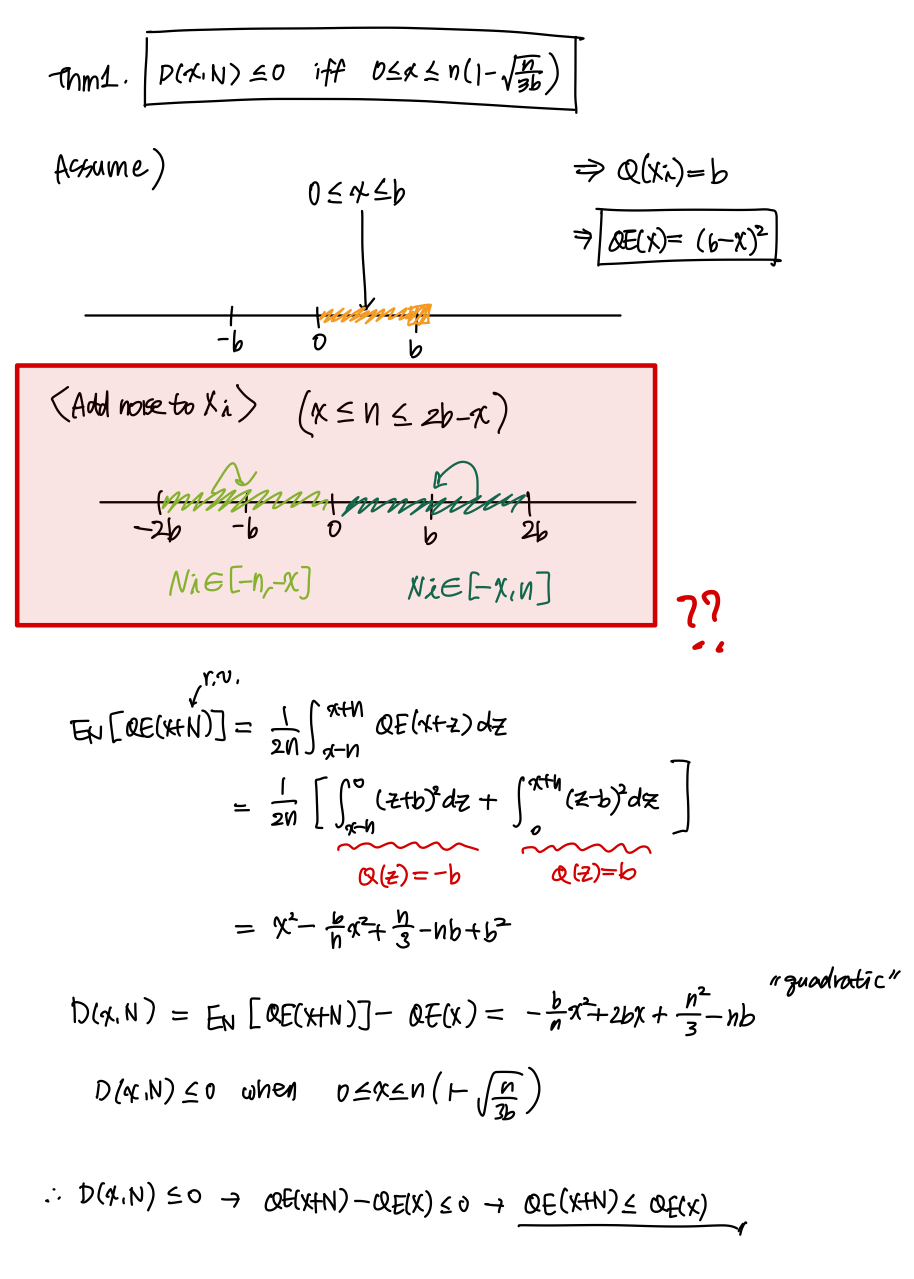 Thm1. D(x,N) ≤ 0 iff 0≤x≤n(1-√(n/3b))
Assume)
⇒ Q(Xi)=b
0≤x≤b
⇒ QE(x)= (b-x)²
-b 0 b
<Add noise to Xi> (x ≤ n ≤ 2b-x)
-2b -b 0 b 2b
Ni∈[-n,-x] Ni∈[-x,n]
??
r.v.
E_N[QE(x+N)] = 1/2n ∫_{x-n}^{x+n} QE(x+z)dz
= 1/2n [∫_{x-n}^{0} (z+b)²dz + ∫_{0}^{x+n} (z-b)²dz]
Q(z)=-b Q(z)=b
= x² - b/n x² + n/3 - nb + b²
"quadratic"
D(x,N) = E_N[QE(x+N)] - QE(x) = -b/n x² + 2bx + n²/3 - nb
D(x,N) ≤ 0 when 0≤x≤n(1-√(n/3b))
∴ D(x,N) ≤ 0 → QE(x+N)-QE(x) ≤ 0 → QE(x+N) ≤ QE(x)